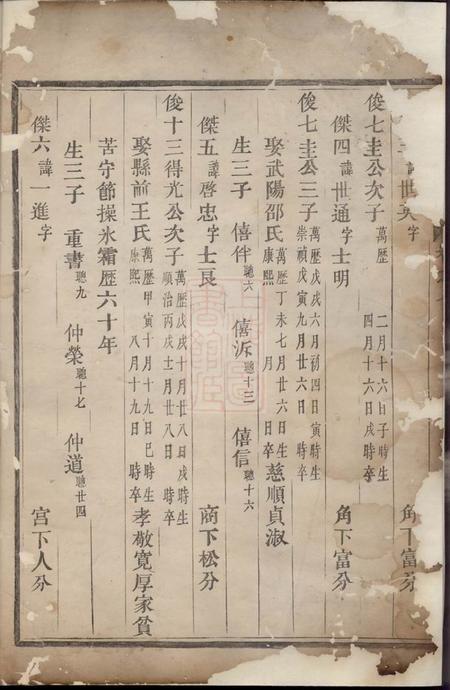 諱世英字 角下富分
俊七圭公次子 萬歷 二月十六日子時生 四月十六日戌時卒
傑四 諱 世通 字 士明 角下富分
俊七圭公三子 萬歷戊戌六月初四日寅時生 崇禎戊寅九月廿六日 時卒
娶武陽邵氏 萬歷丁未七月廿六日生 康熙 月 日卒 慈順貞淑
生三子 僖伴 聰六 僖泝 聰十三 僖信 聰十六
傑五 諱 啓忠 字 士良 商下松分
俊十三得光公次子 萬歷戊戌十月廿八日戌時生 順治丙戌十一月廿八日 時卒
娶縣前王氏 萬歷甲寅十月十九日巳時生 康熙 八月十九日 時卒 孝敬寬厚家貧
苦守節操氷霜歷六十年
生三子 重書 聰九 仲榮 聰十七 仲道 聰廿四
傑六 諱 一進 字 宮下人分